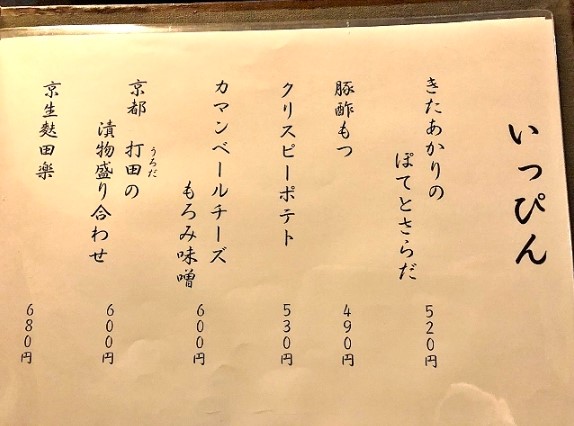 いっぴん
きたあかりの
ぽてとさらだ
520円
豚酢もつ
490円
クリスピーポテト
530円
カマンベールチーズ
もろみ味噌
600円
うちだ
京都 打田の
漬物盛り合わせ
600円
京生麩田楽
680円